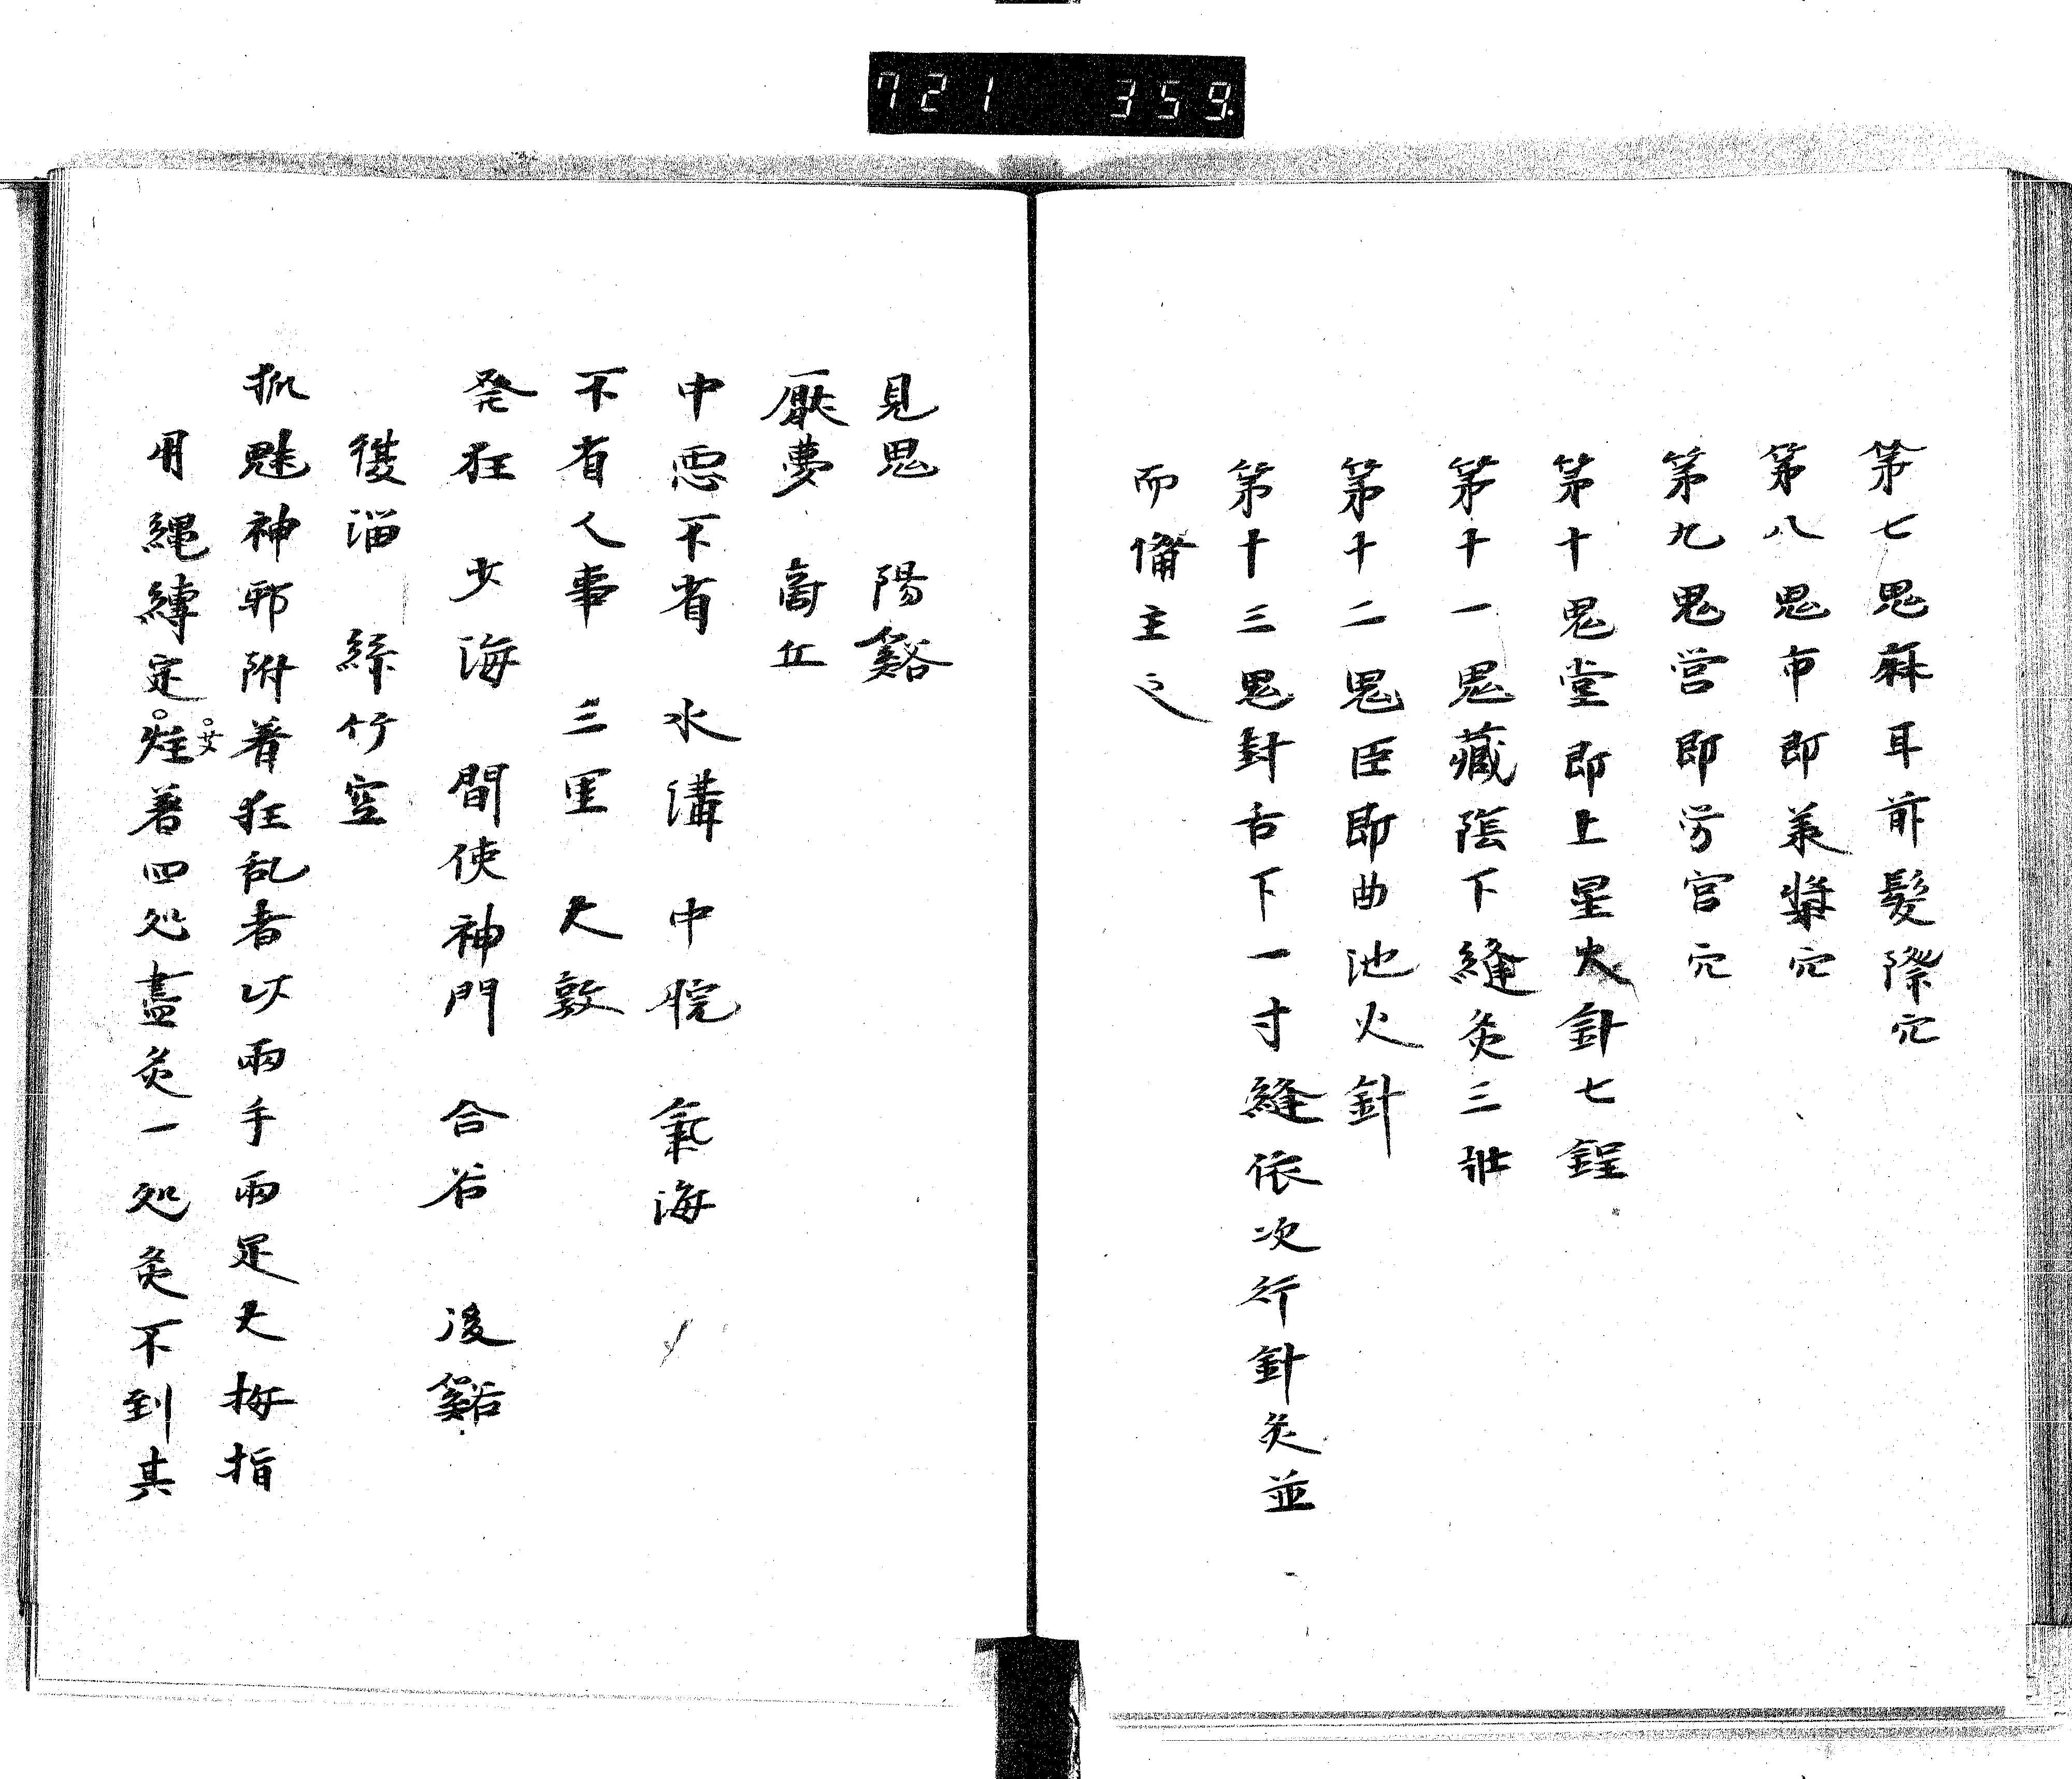 721 359
第七鬼麻耳前髮際穴
第八鬼市即承漿穴
第九鬼営即労宮穴
第十鬼堂即上星火針七鋥
第十一鬼藏陰下縫灸三壯
第十二鬼臣即曲池火針
第十三鬼封舌下一寸縫依次行針灸並
而備主之
見鬼 陽谿
厭夢 商丘
中悪不省 水溝 中脘 氣海
不省人事 三里 大敦
発狂 少海 間使神門 合谷 後谿
復溜 絲竹空
狐魅神邪附着狂乱者以兩手兩足大拇指
用縄縛定。炷著四処盡灸一処灸不到其
。艾